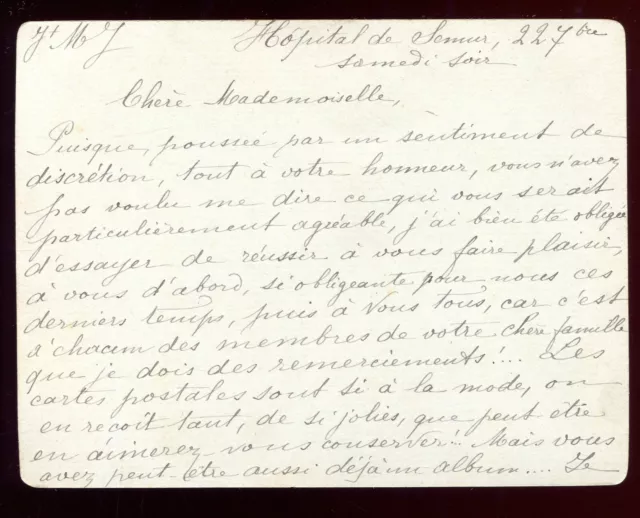 J+ M J
Hôpital de Semur, 22 7bre
samedi soir
Chère Mademoiselle,
Puisque, poussée par un sentiment de
discrétion, tout à votre honneur, vous n'avez
pas voulu me dire ce qui vous serait
particulièrement agréable, j'ai bien été obligée
d'essayer de réussir à vous faire plaisir,
à vous d'abord, si obligeante pour nous ces
derniers temps, puis à vous tous, car c'est
à chacun des membres de votre chère famille
que je dois des remerciements!... Les
cartes postales sont si à la mode, on
en reçoit tant, de si jolies, que peut être
en aimerez vous conserver!.. Mais vous
avez peut-être aussi déjà un album.... Je